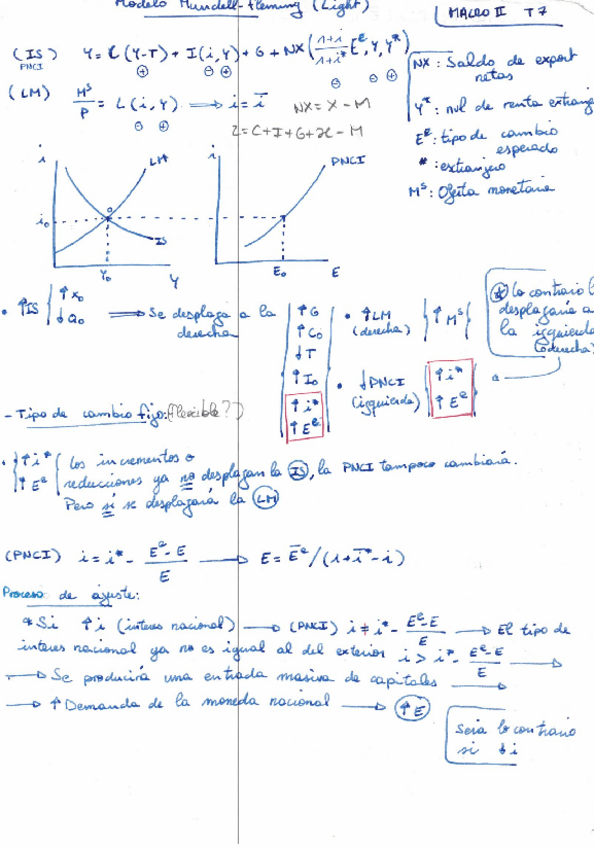 Modelo Mundell-Fleming (Light)
MACRO II T7
(IS) Y = C(Y-T) + I(i,Y) + G + NX(1+i/1+i* E^e, Y, Y*)
PNCI ⊕ ⊖ ⊕ ⊖ ⊖ ⊕
(LM) M^s/P = L(i,Y) ⟹ i = ī
⊖ ⊕
NX = X - M
Z = C + I + G + X - M
NX: Saldo de export
netas
Y*: nvl de renta extranj
E^e: tipo de cambio
esperado
*: extranjero
M^s: Oferta monetaria
i LM i PNCI
i₀ O
IS
Y₀ Y E₀ E
• ↑IS { ↑X₀ ↓Q₀ ⟹ Se desplaza a la
derecha
↑G
↑C₀
↓T
↑I₀
↑i*
↑E^e
• ↑LM
(derecha) { ↑M^s }
• ↓PNCI
(izquierda) { ↑i* ↑E^e }
* lo contrario
desplazaría a
la izquierda
(o derecha)
- Tipo de cambio fijo: (flexible?)
• { ↑i* ↑E^e { Los incrementos o
reducciones ya no desplazan la (IS), la PNCI tampoco cambiará.
Pero sí se desplazará la (LM)
(PNCI) i = i* - E^e - E/E ⟶ E = Ē^e/(1+ī* - i)
Proceso de ajuste:
* Si ↑i (interes nacional) ⟶ (PNCI) i ≠ i* - E^e - E/E ⟶ El tipo de
interes nacional ya no es igual al del exterior i > i* - E^e - E/E ⟶
⟶ Se producirá una entrada masiva de capitales ⟶
⟶ ↑ Demanda de la moneda nacional ⟶ (↑E)
Sería lo contrario
si ↓i